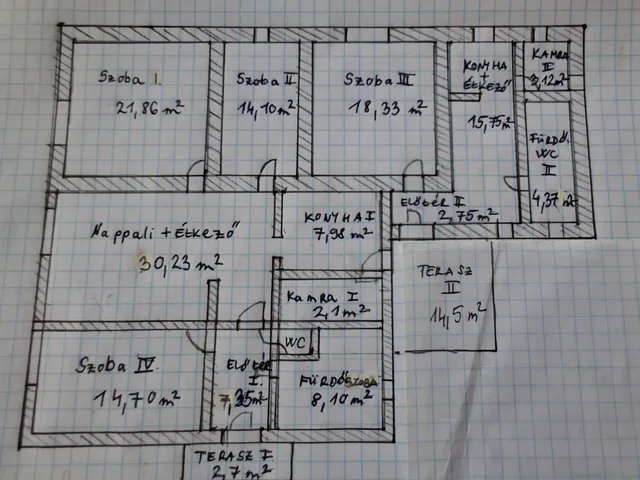 Szoba I.
21,86 m²
Szoba II
14,10 m²
Szoba III
18,33 m²
KONYHA
+
ÉTKEZŐ
15,75 m²
KAMRA
II
2,12 m²
FÜRDŐ.
WC
II
4,37 m²
ELŐTÉR II
2,75 m²
Nappali + ÉTKEZŐ
30,23 m²
KONYHA I
7,98 m²
Kamra I
2,1 m²
TERASZ
II
14,5 m²
Szoba IV.
14,70 m²
ELŐTÉR
I.
7,35 m²
WC
FÜRDŐSZOBA
8,10 m²
TERASZ I.
2,7 m²